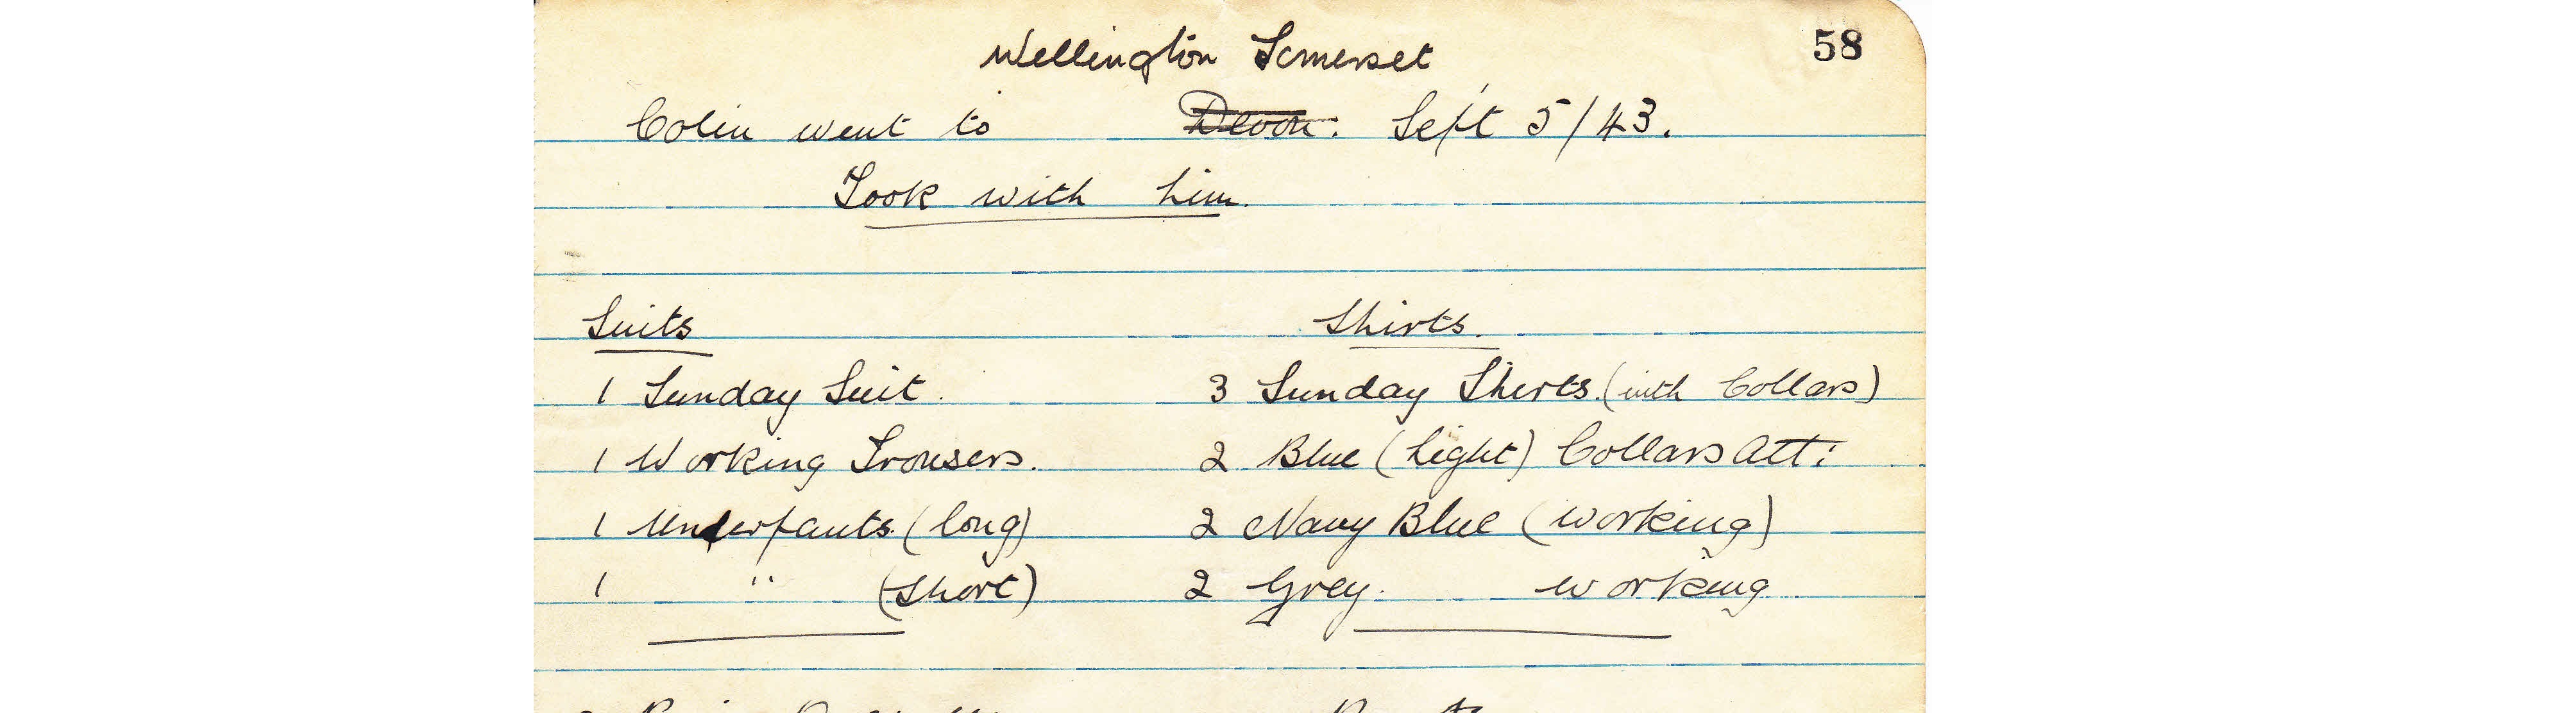 58
Wellington Somerset
Colin went to Devon. Sept 5/43.
Took with him.
Suits
1 Sunday Suit.
1 Working Trousers.
1 Underpants (long)
1 " (Short)
Shirts.
3 Sunday Shirts. (with Collars)
2 Blue (light) Collars Att:
2 Navy Blue (working)
2 Grey. working